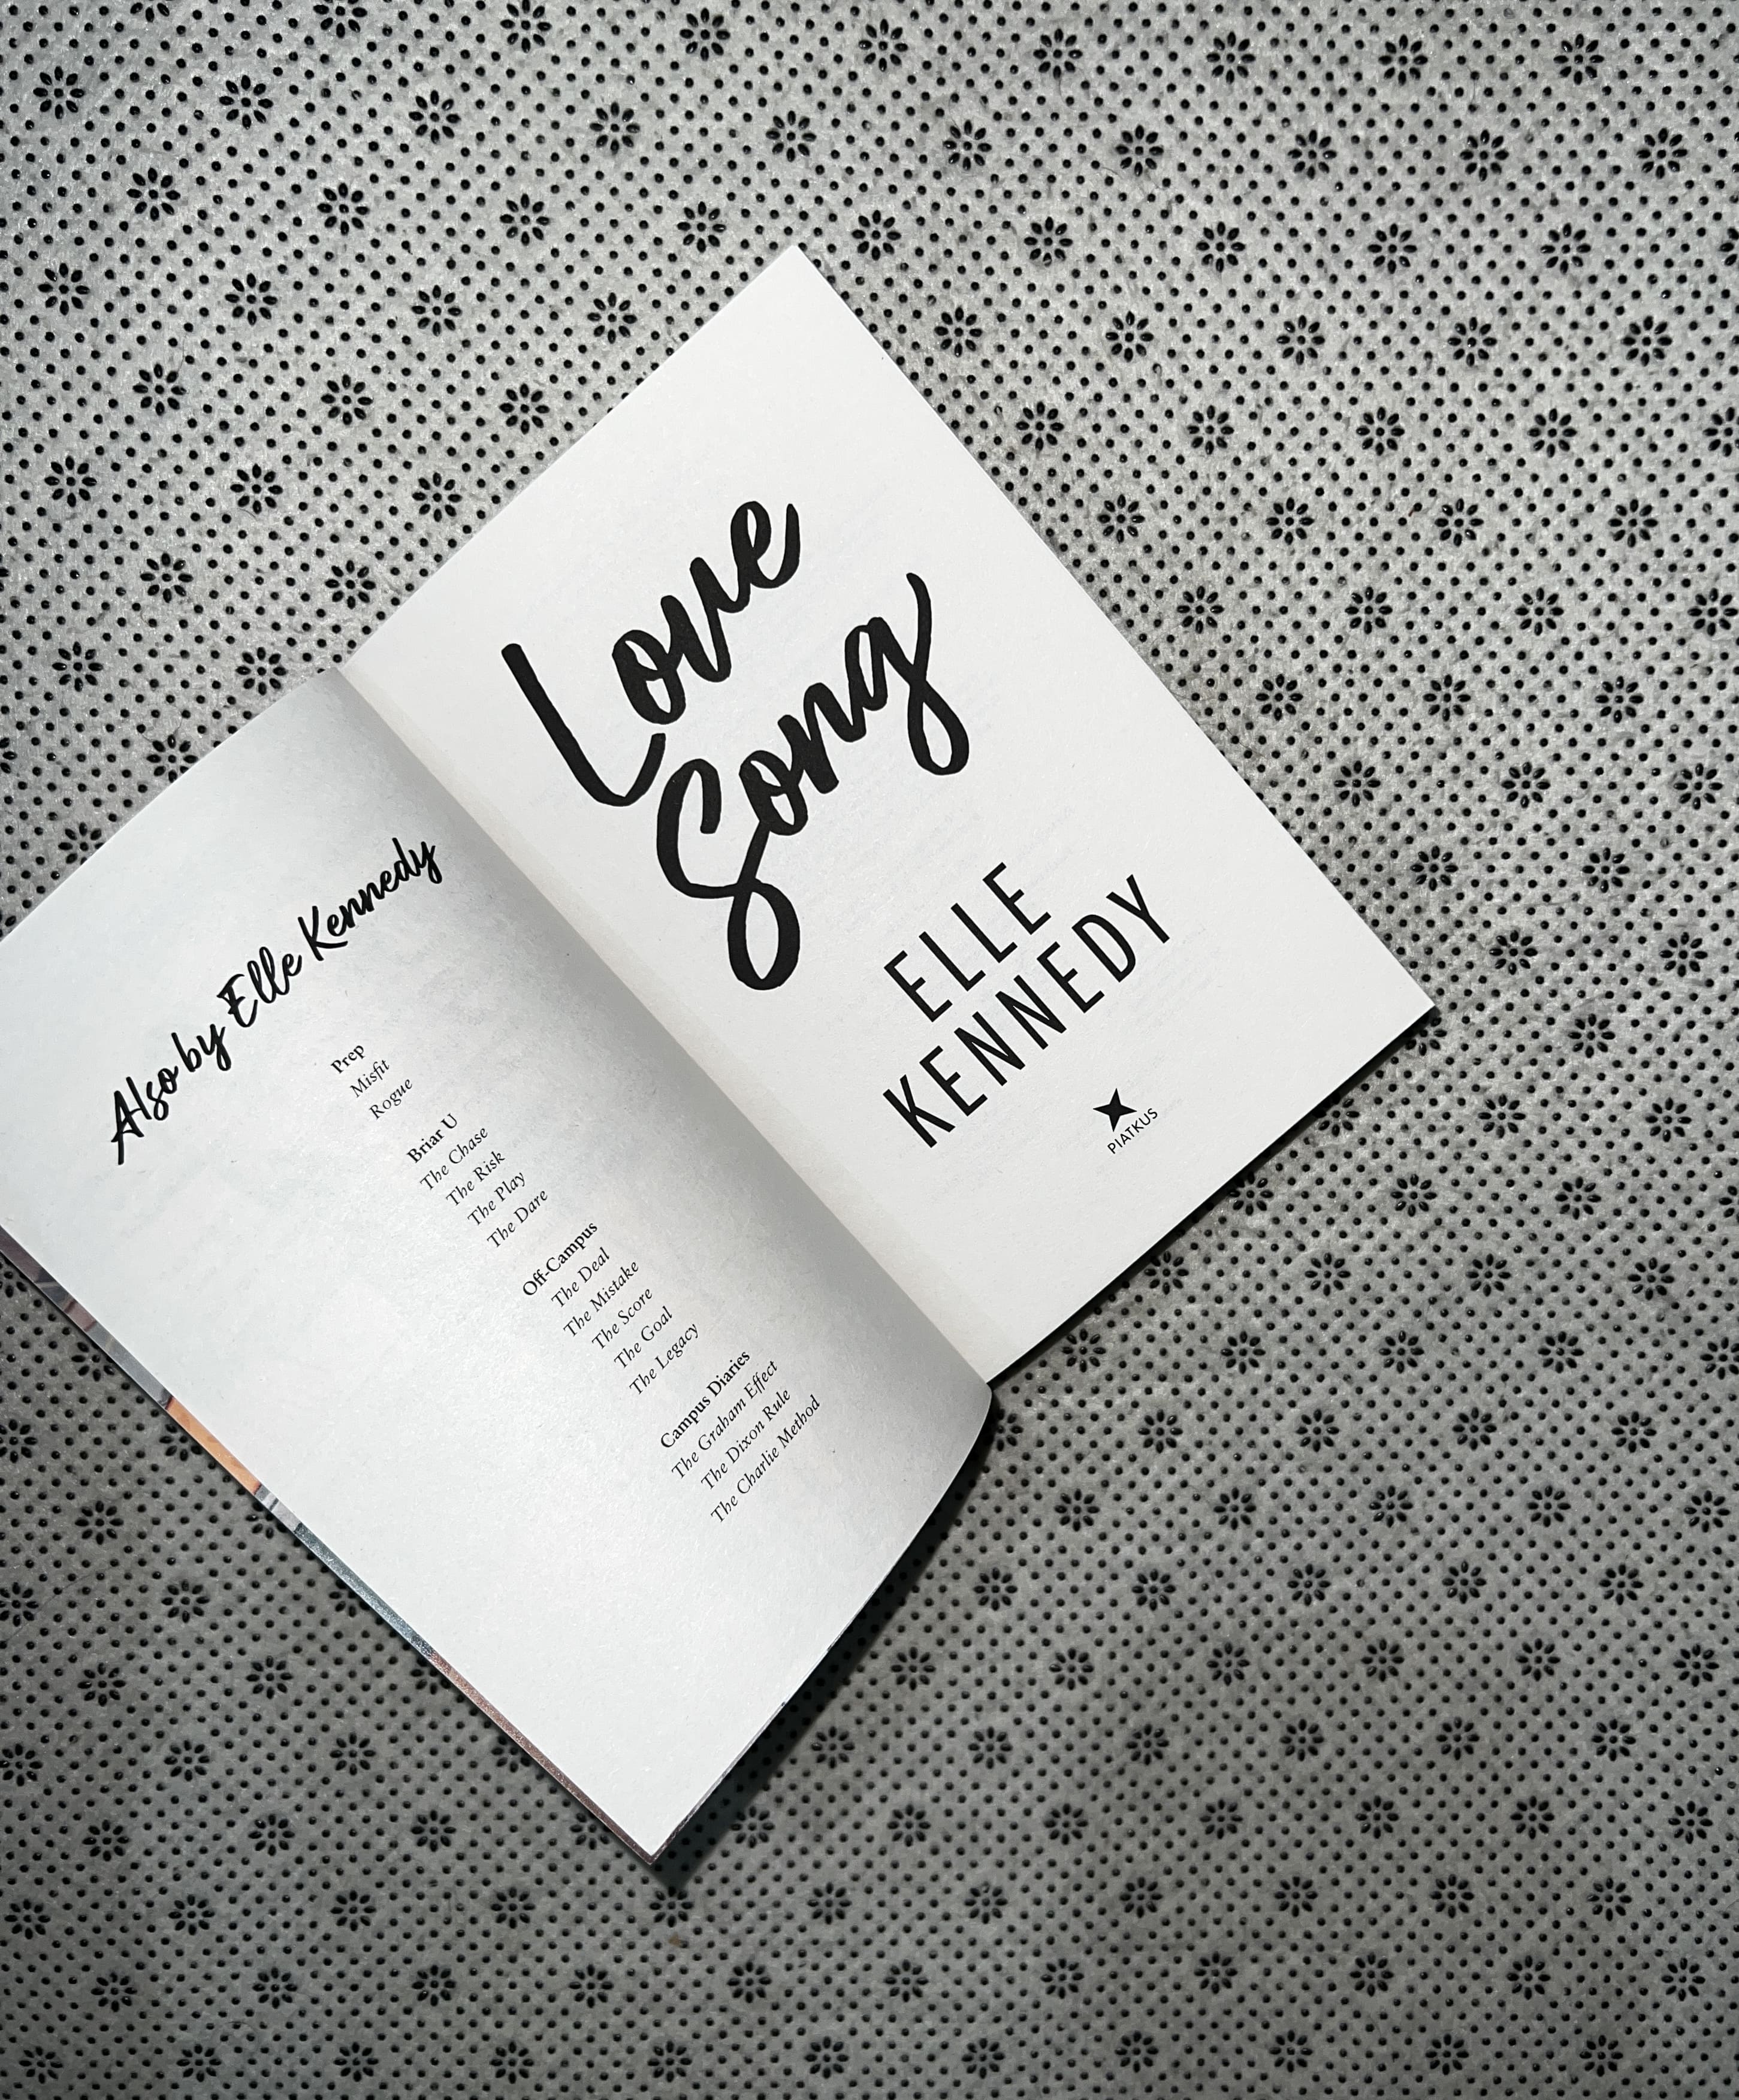 Also by Elle Kennedy
Prep
Misfit
Rogue
Briar U
The Chase
The Risk
The Play
The Dare
Off-Campus
The Deal
The Mistake
The Score
The Goal
The Legacy
Campus Diaries
The Graham Effect
The Dixon Rule
The Charlie Method
Love
Song
ELLE
KENNEDY
PIATKUS